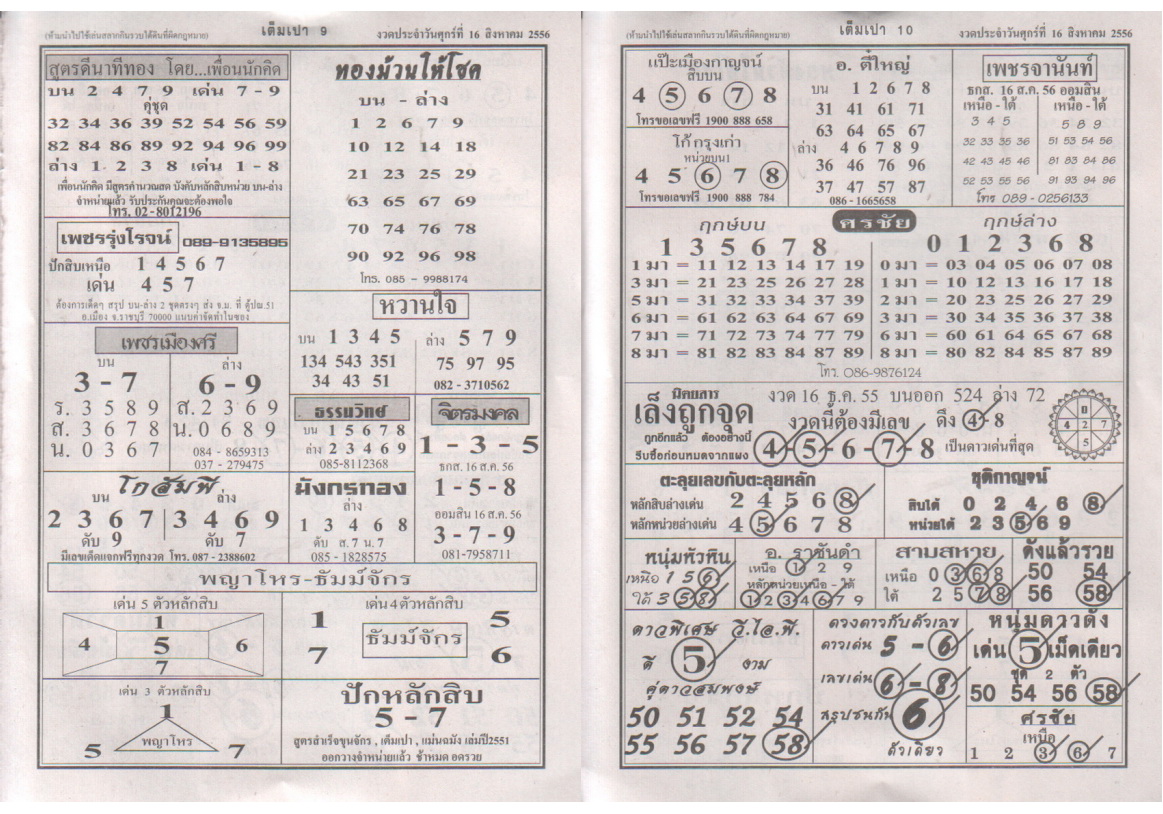 (ห้ามนำไปใช้เล่นสลากกินรวบได้ดินที่ผิดกฎหมาย) เต็มเปา 9 งวดประจำวันศุกร์ที่ 16 สิงหาคม 2556
สูตรดีนาทีทอง โดย...เพื่อนนักคิด
บน 2 4 7 9 เด่น 7 - 9
คู่ชุด
32 34 36 39 52 54 56 59
82 84 86 89 92 94 96 99
ล่าง 1 2 3 8 เด่น 1 - 8
เพื่อนนักคิด มีสูตรคำนวณสด บังคับหลักสิบหน่วย บน-ล่าง
จำหน่ายแล้ว รับประกันคุณจะต้องพอใจ
โทร. 02-8012196
เพชรรุ่งโรจน์ 089-9135895
ปักสิบเหนือ 1 4 5 6 7
เด่น 4 5 7
ต้องการเด็ดๆ สรุป บน-ล่าง 2 ชุดตรงๆ ส่ง จ.ม. ที่ ตู้ปณ.51
อ.เมือง จ.ราชบุรี 70000 แนบค่าจัดทำในซอง
เพชรเมืองศรี
บน ล่าง
3 - 7 6 - 9
ร. 3 5 8 9 ส. 2 3 6 9
ส. 3 6 7 8 น. 0 6 8 9
น. 0 3 6 7 084 - 8659313
037 - 279475
โกสัมพี
บน ล่าง
2 3 6 7 3 4 6 9
ดับ 9 ดับ 7
มีเลขเด็ดแจกฟรีทุกงวด โทร. 087 - 2388602
ทองม้วนให้โชค
บน - ล่าง
1 2 6 7 9
10 12 14 18
21 23 25 29
63 65 67 69
70 74 76 78
90 92 96 98
โทร. 085 - 9988174
หวานใจ
บน 1 3 4 5 ล่าง 5 7 9
134 543 351 75 97 95
34 43 51 082 - 3710562
ธรรมวิทย์
บน 1 5 6 7 8
ล่าง 2 3 4 6 9
085-8112368
จิตรมงคล
1 - 3 - 5
ธกส. 16 ส.ค. 56
1 - 5 - 8
ออมสิน 16 ส.ค. 56
3 - 7 - 9
081-7958711
มังกรทอง
ล่าง
1 3 4 6 8
ดับ ส. 7 น. 7
085 - 1828575
พญาโหร-ธัมม์จักร
เด่น 5 ตัวหลักสิบ
1
4 5 6
7
เด่น 4 ตัวหลักสิบ
1 5
ธัมม์จักร
7 6
เด่น 3 ตัวหลักสิบ
1
พญาโหร
5 7
ปักหลักสิบ
5 - 7
สูตรสำเร็จขุนจักร , เต็มเปา , แม่นฉมัง เล่มปี2551
ออกวางจำหน่ายแล้ว ช้าหมด อดรวย
(ห้ามนำไปใช้เล่นสลากกินรวบได้ดินที่ผิดกฎหมาย) เต็มเปา 10 งวดประจำวันศุกร์ที่ 16 สิงหาคม 2556
แป๊ะเมืองกาญจน์
สิบบน
4 5 6 7 8
โทรขอเลขฟรี 1900 888 658
โก้ กรุงเก่า
หน่วยบน1
4 5 6 7 8
โทรขอเลขฟรี 1900 888 784
อ. ตี๋ใหญ่
บน 1 2 6 7 8
31 41 61 71
63 64 65 67
ล่าง 4 6 7 8 9
36 46 76 96
37 47 57 87
086 - 1665658
เพชรจานันท์
ธกส. 16 ส.ค. 56 ออมสิน
เหนือ - ใต้ เหนือ - ใต้
3 4 5 5 8 9
32 33 35 36 51 53 54 56
42 43 45 46 81 83 84 86
52 53 55 56 91 93 94 96
โทร 089 - 0256133
ฤกษ์บน ศรชัย ฤกษ์ล่าง
1 3 5 6 7 8 0 1 2 3 6 8
1 มา = 11 12 13 14 17 19 0 มา = 03 04 05 06 07 08
3 มา = 21 23 25 26 27 28 1 มา = 10 12 13 16 17 18
5 มา = 31 32 33 34 37 39 2 มา = 20 23 25 26 27 29
6 มา = 61 62 63 64 67 69 3 มา = 30 34 35 36 37 38
7 มา = 71 72 73 74 77 79 6 มา = 60 61 64 65 67 68
8 มา = 81 82 83 84 87 89 8 มา = 80 82 84 85 87 89
โทร. 086-9876124
นิตยสาร
เล็งถูกจุด
ถูกอีกแล้ว ต้องอย่างนี้
รีบซื้อก่อนหมดจากแผง
งวด 16 ธ.ค. 55 บนออก 524 ล่าง 72
งวดนี้ต้องมีเลข ดึง 4 - 8
4 - 5 - 6 - 7 - 8 เป็นดาวเด่นที่สุด
8
4 2 7
5
ตะลุยเลขกับตะลุยหลัก
หลักสิบล่างเด่น 2 4 5 6 8
หลักหน่วยล่างเด่น 4 5 6 7 8
ชุติกาญจน์
สิบใต้ 0 2 4 6 8
หน่วยใต้ 2 3 5 6 9
หนุ่มหัวหิน
เหนือ 1 5 6
ใต้ 3 5 8
อ. ราชันดำ
เหนือ 1 2 9
หลักหน่วยเหนือ - ใต้
1 2 3 4 6 7 9
สามสหาย
เหนือ 0 3 6 8
ใต้ 2 5 7 8
ดังแล้วรวย
50 54
56 58
ดาวพิเศษ วี.ไอ.พี.
ดี 5 งาม
คู่ดาวสมพงษ์
50 51 52 54
55 56 57 58
ดวงดาวกับตัวเลข
ดาวเด่น 5 - 6
เลขเด่น 6 - 8
สรุปชนกัน 6
ตัวเดียว
หนุ่มดาวดัง
เด่น 5 เม็ดเดียว
ชุด 2 ตัว
50 54 56 58
ศรชัย
เหนือ
1 2 3 6 7